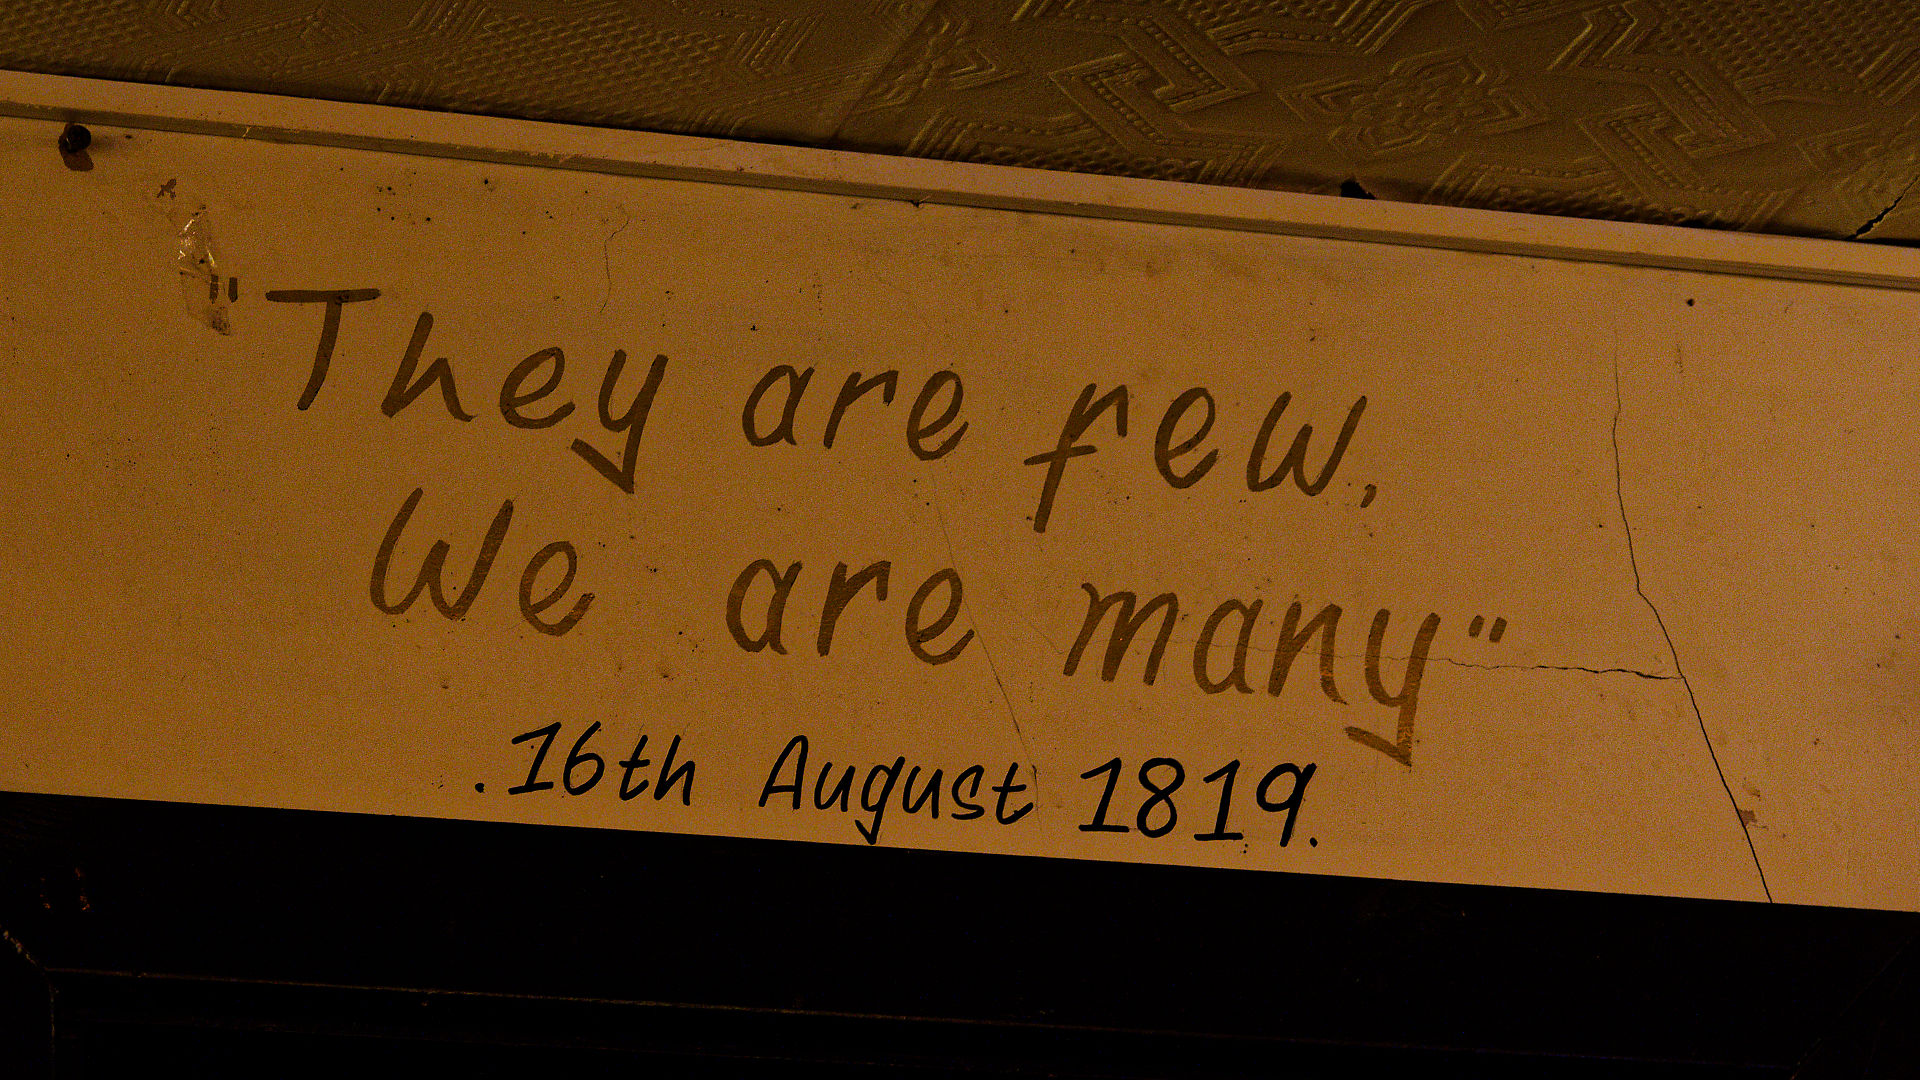 "They are few,
We are many"
.16th August 1819.